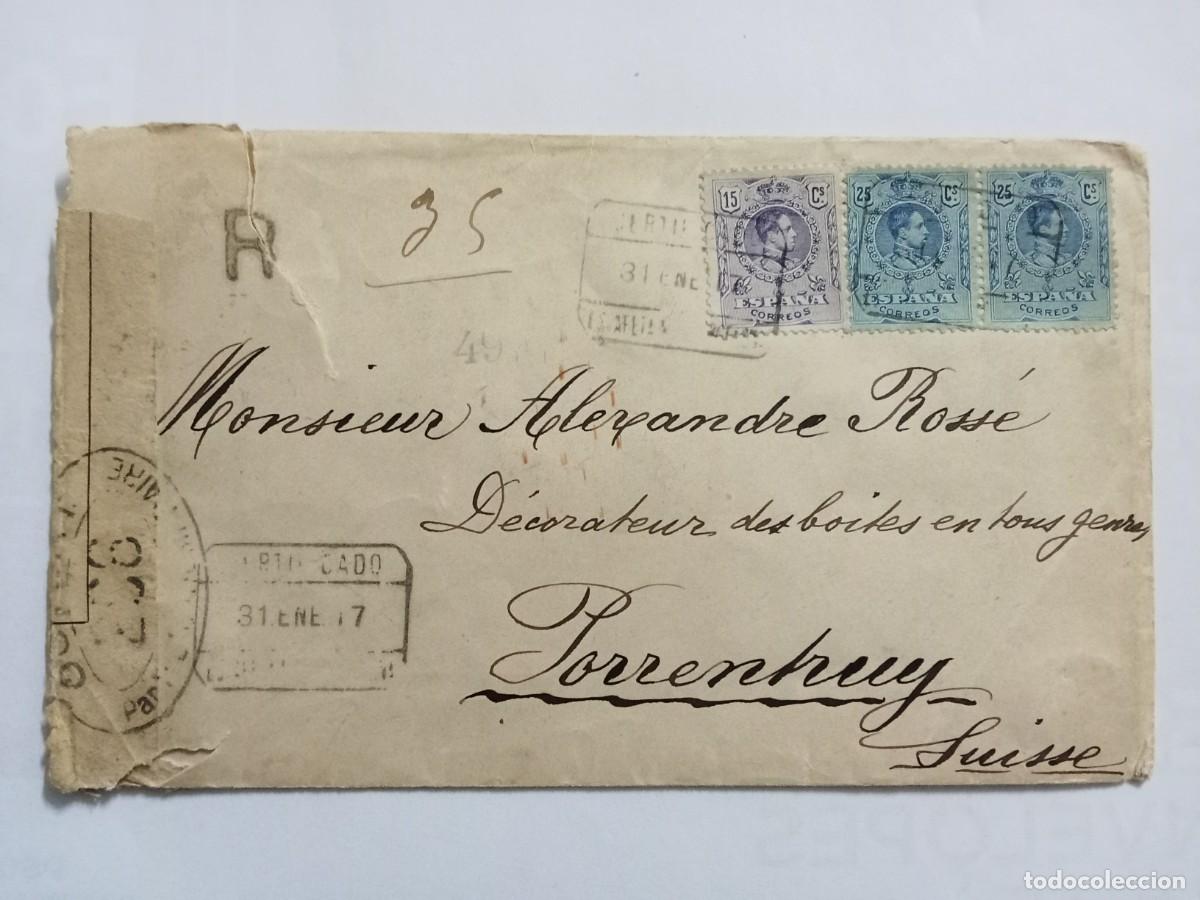 R
35
15 Cs
ESPAÑA
CORREOS
25 Cs
ESPAÑA
CORREOS
25 Cs
ESPAÑA
CORREOS
31 ENE 17
Monsieur Alexandre Rossé
Décorateur des boites en tous genres
Porrentruy
Suisse
31 ENE 17
todocoleccion